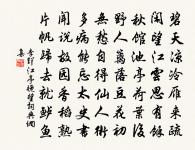 碧天涼冷雁来疏
閒望江雲思有餘
秋館池亭荷葉後
野人籬落豆花初
無愁自得仙人術
多病能忘太史書
聞說故園香稻熟
片帆歸去就鱸魚
李郢江亭晚望詞典網
集